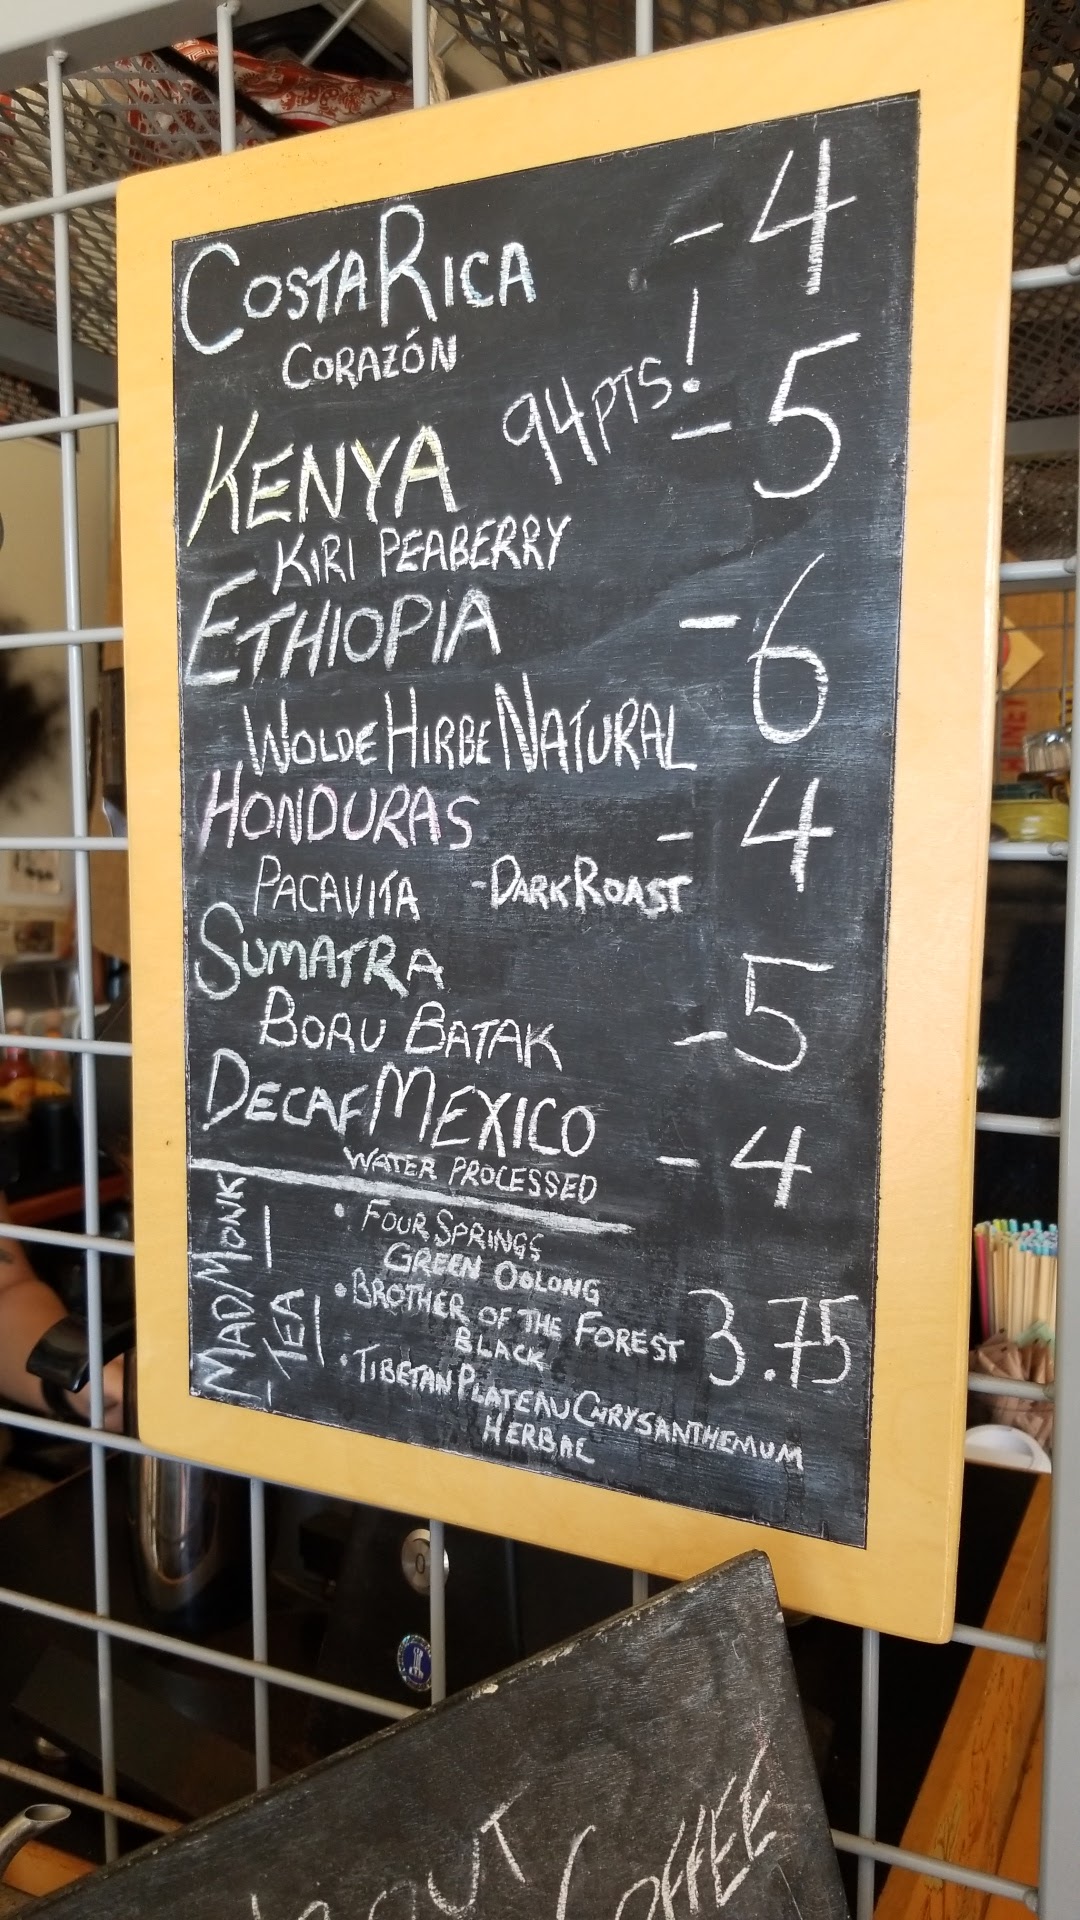 COSTA RICA - 4
CORAZÓN
KENYA 94 PTS! - 5
KIRI PEABERRY
ETHIOPIA - 6
WOLDE HIRBE NATURAL
HONDURAS - 4
PACAVITA - DARK ROAST
SUMATRA
BORU BATAK - 5
DECAF MEXICO
WATER PROCESSED - 4
MAD MONK
TEA
• FOUR SPRINGS
GREEN OOLONG
• BROTHER OF THE FOREST 3.75
BLACK
• TIBETAN PLATEAU CHRYSANTHEMUM
HERBAL
COFFEE